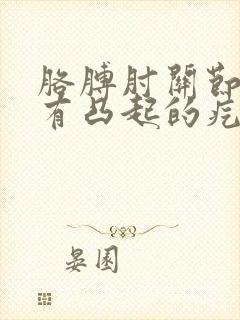 胳膊肘關節
有凸起的疙
晏園